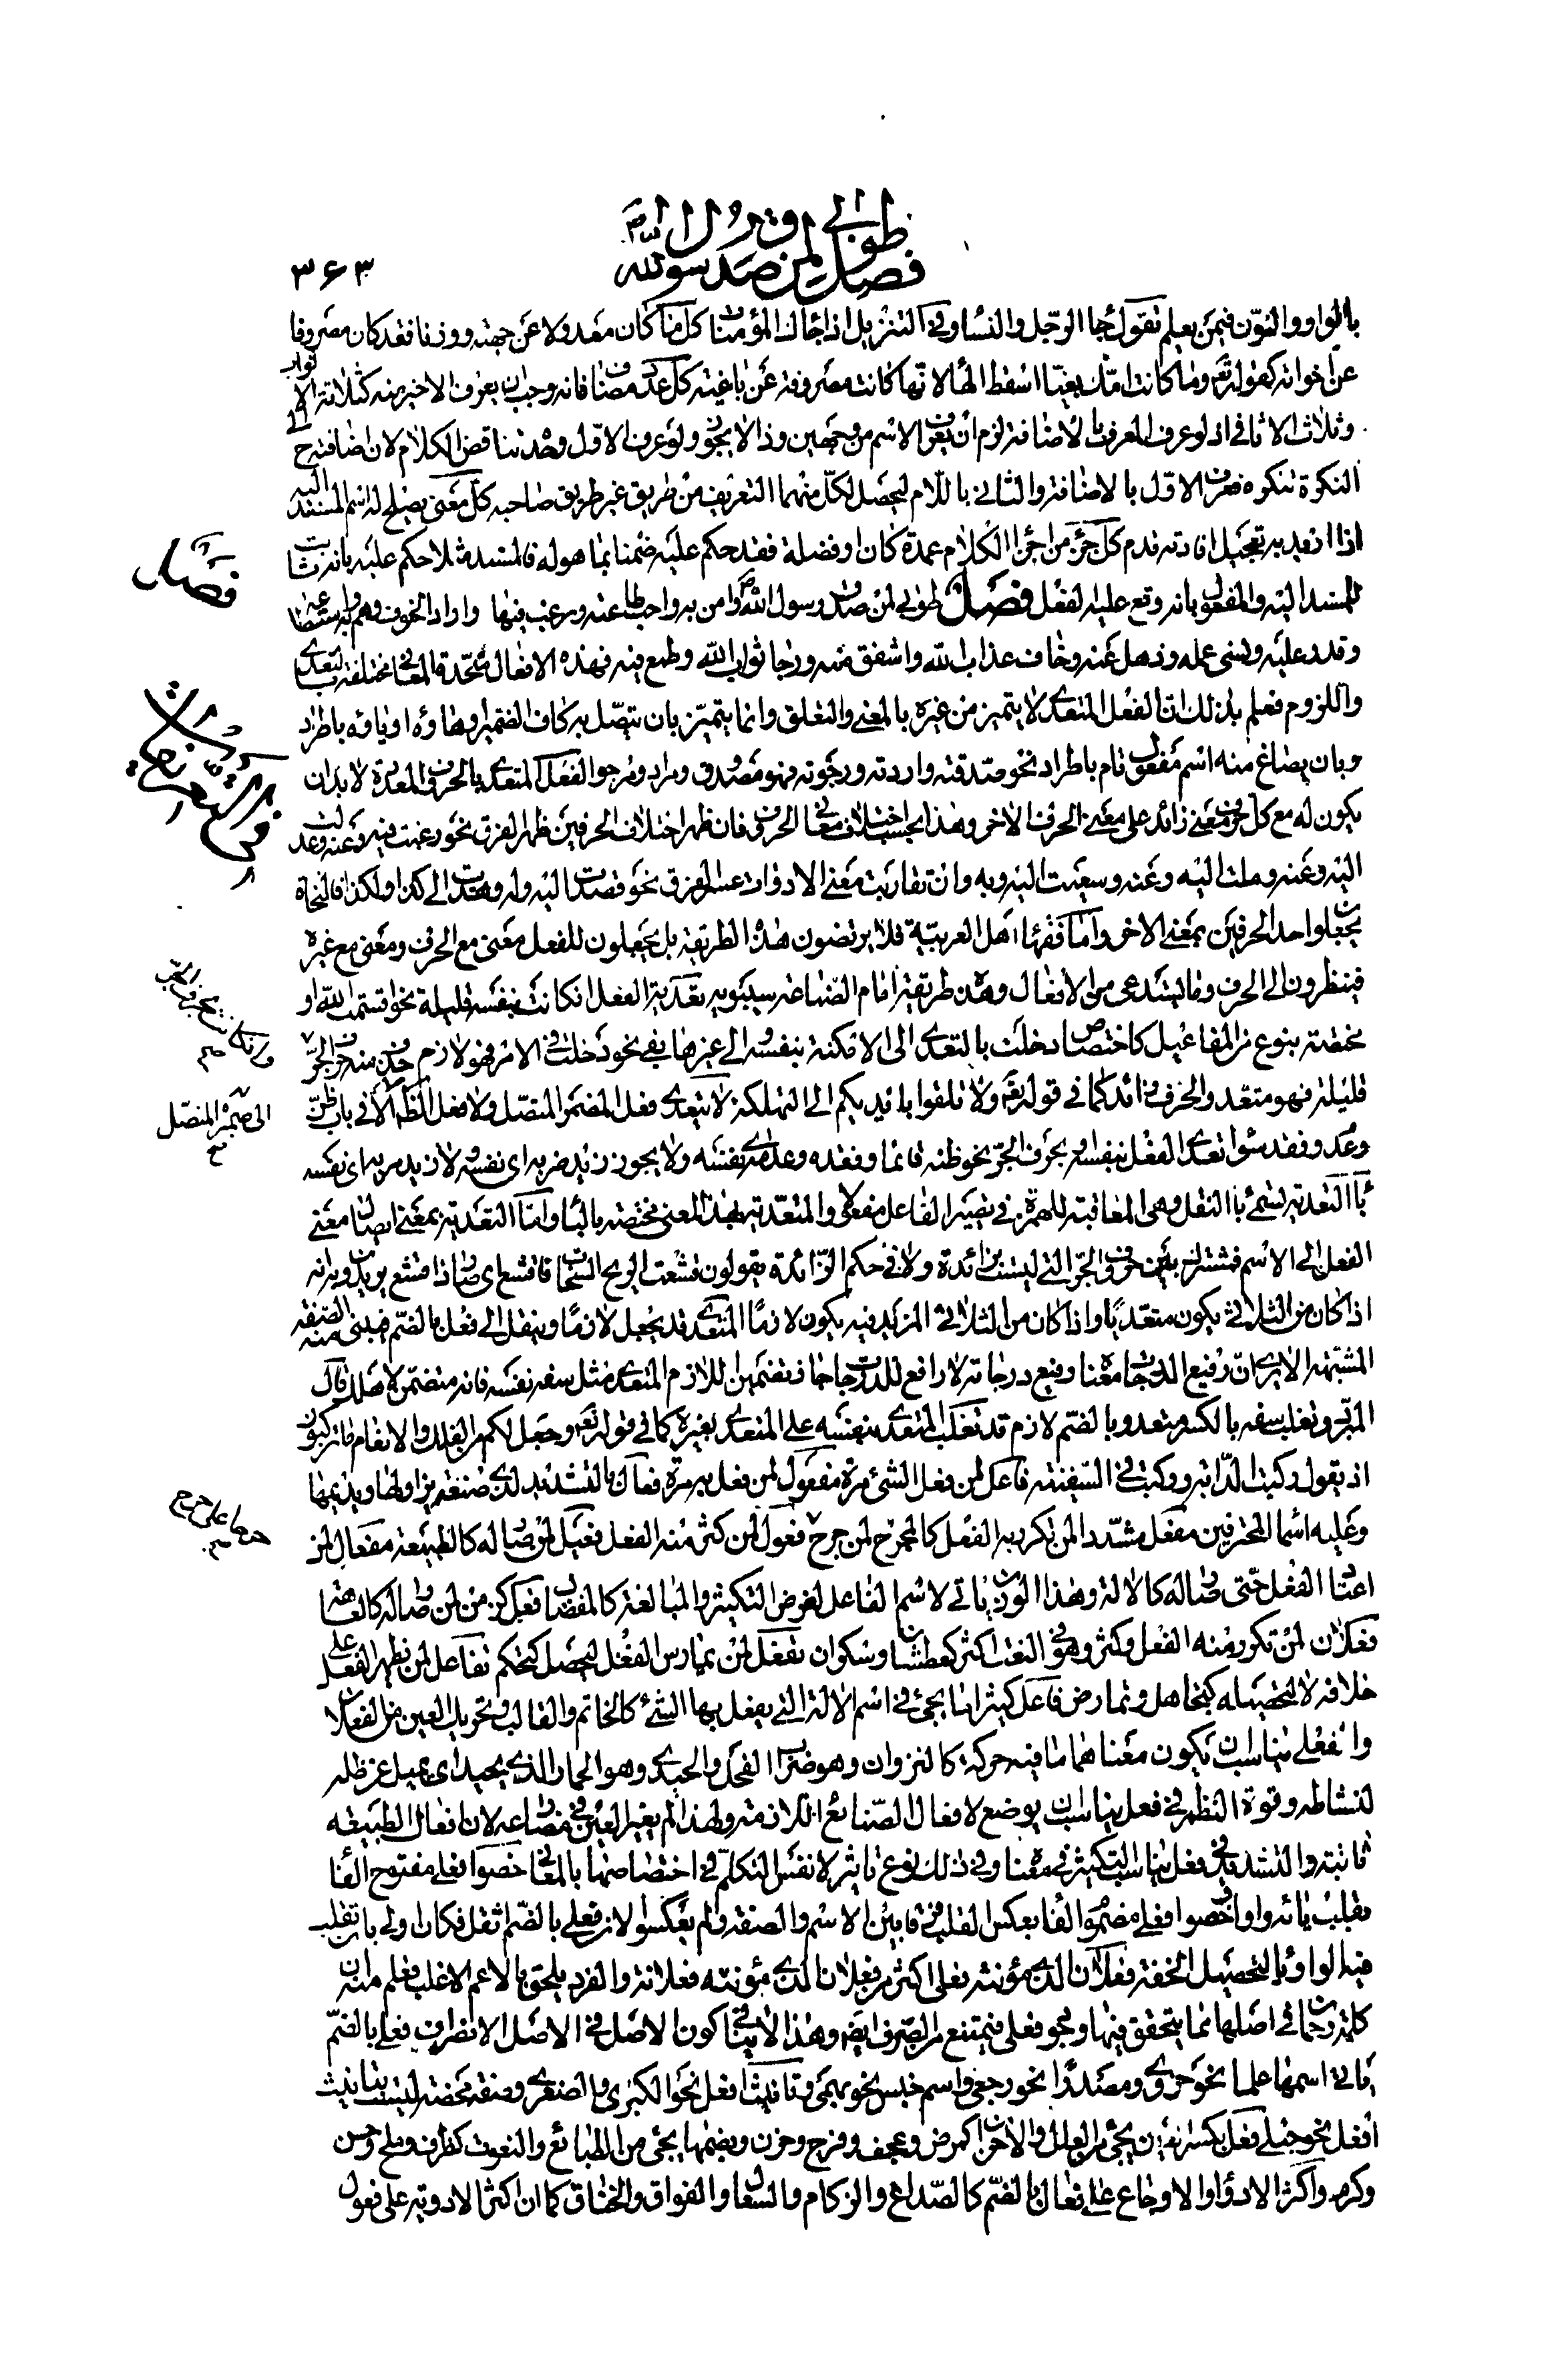 طوبى لمن صدق رسول الله
فصل
٣٦٣
بالواو والنون فيمن يعلم تقول جاء الرجل والنساء وفي التنزيل اذا جاءك المؤمنات كل ما كان معدولا عن جهته ووزنه فقد كان مصروفا
عن اخواته كقوله تعالى وما كانت امك بغيا اسقط الهاء لانها كانت مصروفة عن باغية كل عدد مضاف فانه وجب ان يعرف الاخير منه كثلاثة الاثواب
وثلاث الاثافي اذ لو عرف المعرف بالاضافة لزم ان يعرف الاسم من وجهين وذا لا يجوز ولو عرف الاول وحده تناقض الكلام لان اضافته ح الى
النكرة تنكره فعرف الاول بالاضافة والثاني باللام ليحصل لكل منهما التعريف من طريق غير طريق صاحبه كل معنى يصلح له اسم المسند اليه
اذا اريد به تعجيل افادته قدم كل جزء من اجزاء الكلام عمدة كان او فضلة فقد حكم عليه ضمنا بما هو له فالمسند مثلا حكم عليه بانه ثابت
للمسند اليه والمفعول بانه وقع عليه الفعل فصل طوبى لمن صدق رسول الله وامن به واحب طاعته ورغب فيها واراد الخوف وهم به
وقدر عليه ونسى عمله وذهل عنه وخاف عذاب الله واشفق منه ورجا ثواب الله وطمع فيه فهذه الافعال متحدة المعاني مختلفة بالتعدي
واللزوم فعلم بذلك ان الفعل المتعدي لا يتميز من غيره بالمعنى والتعلق وانما يتميز بان يتصل به كاف الضمير وهاؤه او ياؤه باطراد
وبان يصاغ منه اسم مفعول تام باطراد نحو صدقته واردته ورجوته فهو مصدوق ومراد ومرجو الفعل المتعدي بالحروف المعدية لا بد ان
يكون له مع كل حرف معنى زائد على معنى الحرف الاخر وهذا بحسب اختلاف معاني الحروف فان ظهر اختلاف الحرفين ظهر الفرق نحو رغبت فيه وعنه وعدلت
اليه وعنه وملت اليه وعنه وسعيت اليه وبه وان تقاربت معنى الادوات عسر الفرق نحو قصدت اليه وله وهديت الى كذا ولكذا فالنحاة
يجعلون احد الحرفين بمعنى الاخر واما فقهاء اهل العربية فلا يرتضون هذه الطريقة بل يجعلون للفعل معنى مع الحرف ومعنى مع غيره
فينظرون الى الحرف وما يستدعي من الافعال وهذه طريقة امام الصناعة سيبويه تعدية الفعل ان كانت بنفسه قليلة نحو اقسمت الله او
مختصة بنوع من المفاعيل كاختصاص دخلت بالتعدي الى الامكنة بنفسه والى غيرها بفي نحو دخلت في الامر فهو لازم حذف منه حرف الجر
وان كانت بحرف الجر
قليلة فهو متعد والحرف زائد كما في قوله تعالى ولا تلقوا بايديكم الى التهلكة لا يتعدى فعل المضمر المتصل ولا فعل الظاهر الا في باب ظن
الى ضميره المتصل
وعدم وفقد سواء تعدى الفعل بنفسه او بحرف الجر نحو ظنه قائما وفقده وعدمه اي نفسه ولا يجوز زيد ضربه اي نفسه ولا زيد مر به اي نفسه
باء التعدية تسمى باء النقل وهي المعاقبة للهمزة في تصيير الفاعل مفعولا والمتعدية بهذا المعنى مختصة بالباء واما التعدية بمعنى ايصال معنى
الفعل الى الاسم فمشترك بين حروف الجر التي ليست بزائدة ولا في حكم الزائدة يقولون قشعت الريح السحاب فاقشع اي صار ذا قشع يريدون به انه
اذا كان من الثلاثي يكون متعديا واذا كان من الثلاثي المزيد فيه يكون لازما المتعدي قد يجعل لازما وينقل الى فعل بالضم فيبنى منه الصفة
المشبهة الا يرى ان رفيع الدرجات معناه رفيع درجاته لا رافع للدرجات
المبرد وثعلب سفه بالكسر متعد وبالضم لازم قد تغلب المتعدي بنفسه على المتعدي بغيره كما في قوله تعالى وجعل لكم من الفلك والانعام ما تركبون
اذ يقول ركبت الدابة وركبت في السفينة فاعل لمن فعل الشيء مرة مفعول لمن فعل به مرة فعال بالتشديد لذي صنعة يزاولها ويديمها
وعليه اسماء المحترفين مفعل مشدد المن تكرر به الفعل كالمجرح لمن جرح فعول لمن كثر منه الفعل فعيل لمن صار له كالطبيعة مفعال لمن
جرحا على جرح
اعتاد الفعل حتى صار له كالالة وهذا الوزن ياتي لاسم الفاعل لغرض التكثير والمبالغة كالمفضال فعل كزمن لمن صار له كالعاهة
فعلان لمن تكرر منه الفعل وكثر وهو في النعت اكثر كعطشان وسكران تفعل لمن يمارس الفعل ليحصل كتحكم تفاعل لمن يظهر الفعل على
خلافه لا لتحصيله كتجاهل وتمارض فاعل كثيرا ما يجئ في اسم الالة التي يفعل بها الشئ كالخاتم والقالب وتحريك العين من الفعلان
والفعلى يناسب ان يكون معناهما ما فيه حركة كالنزوان وهو ضراب الفحل والحيدى وهو الحمار الذي يحيد اي يميل عن ظله
لنشاطه وقوة النظم في فعل يناسب ان يوضع لافعال الصنائع اللازمة ولهذا لم يغير العين في مضارعه لان افعال الطبيعة
ثابتة والتشديد في فعل يناسب التكثير في معناه وفي ذلك نوع تاثير لانفس التكلم في اختصاصها بالمعاني خصوا فعلى مفتوح الفاء
بقلب يائه واوا وخصوا فعلى مضموم الفاء بعكس القلب فرقا بين الاسم والصفة ولم يعكسوا لان فعلى بالضم اثقل فكان اولى بان تقلب
فيه الواو ياء لتحصيل الخفة فعلان الذي مؤنثه فعلى اكثر من فعلان الذي مؤنثه فعلانة والفرد يلحق بالاعم الاغلب فعلم منه ان
كلمة رحمان في اصلها مما يتحقق فيها وجود فعلى فيمتنع من الصرف ايضا وهذا لا ينافي كون الاصل في الاصل الانصراف فعلى بالضم
تاتي اسمها علما نحو حزوى ومصدرا نحو رجعى واسم جنس نحو بهمى وتانيث افعل نحو الكبرى والصغرى وصفة محضة ليست بتانيث
افعل نحو حبلى فعل بكسر العين يجئ من العلل والاحزان كمرض وعجف وفرح وحزن وبضمها يجئ من الطبائع والنعوت كظرف وملح وحسن
وكرم واكثر الادواء والاوجاع على فعال بالضم كالصداع والزكام والسعال والفواق والخناق كما ان اكثر الادوية على فعول
فصل